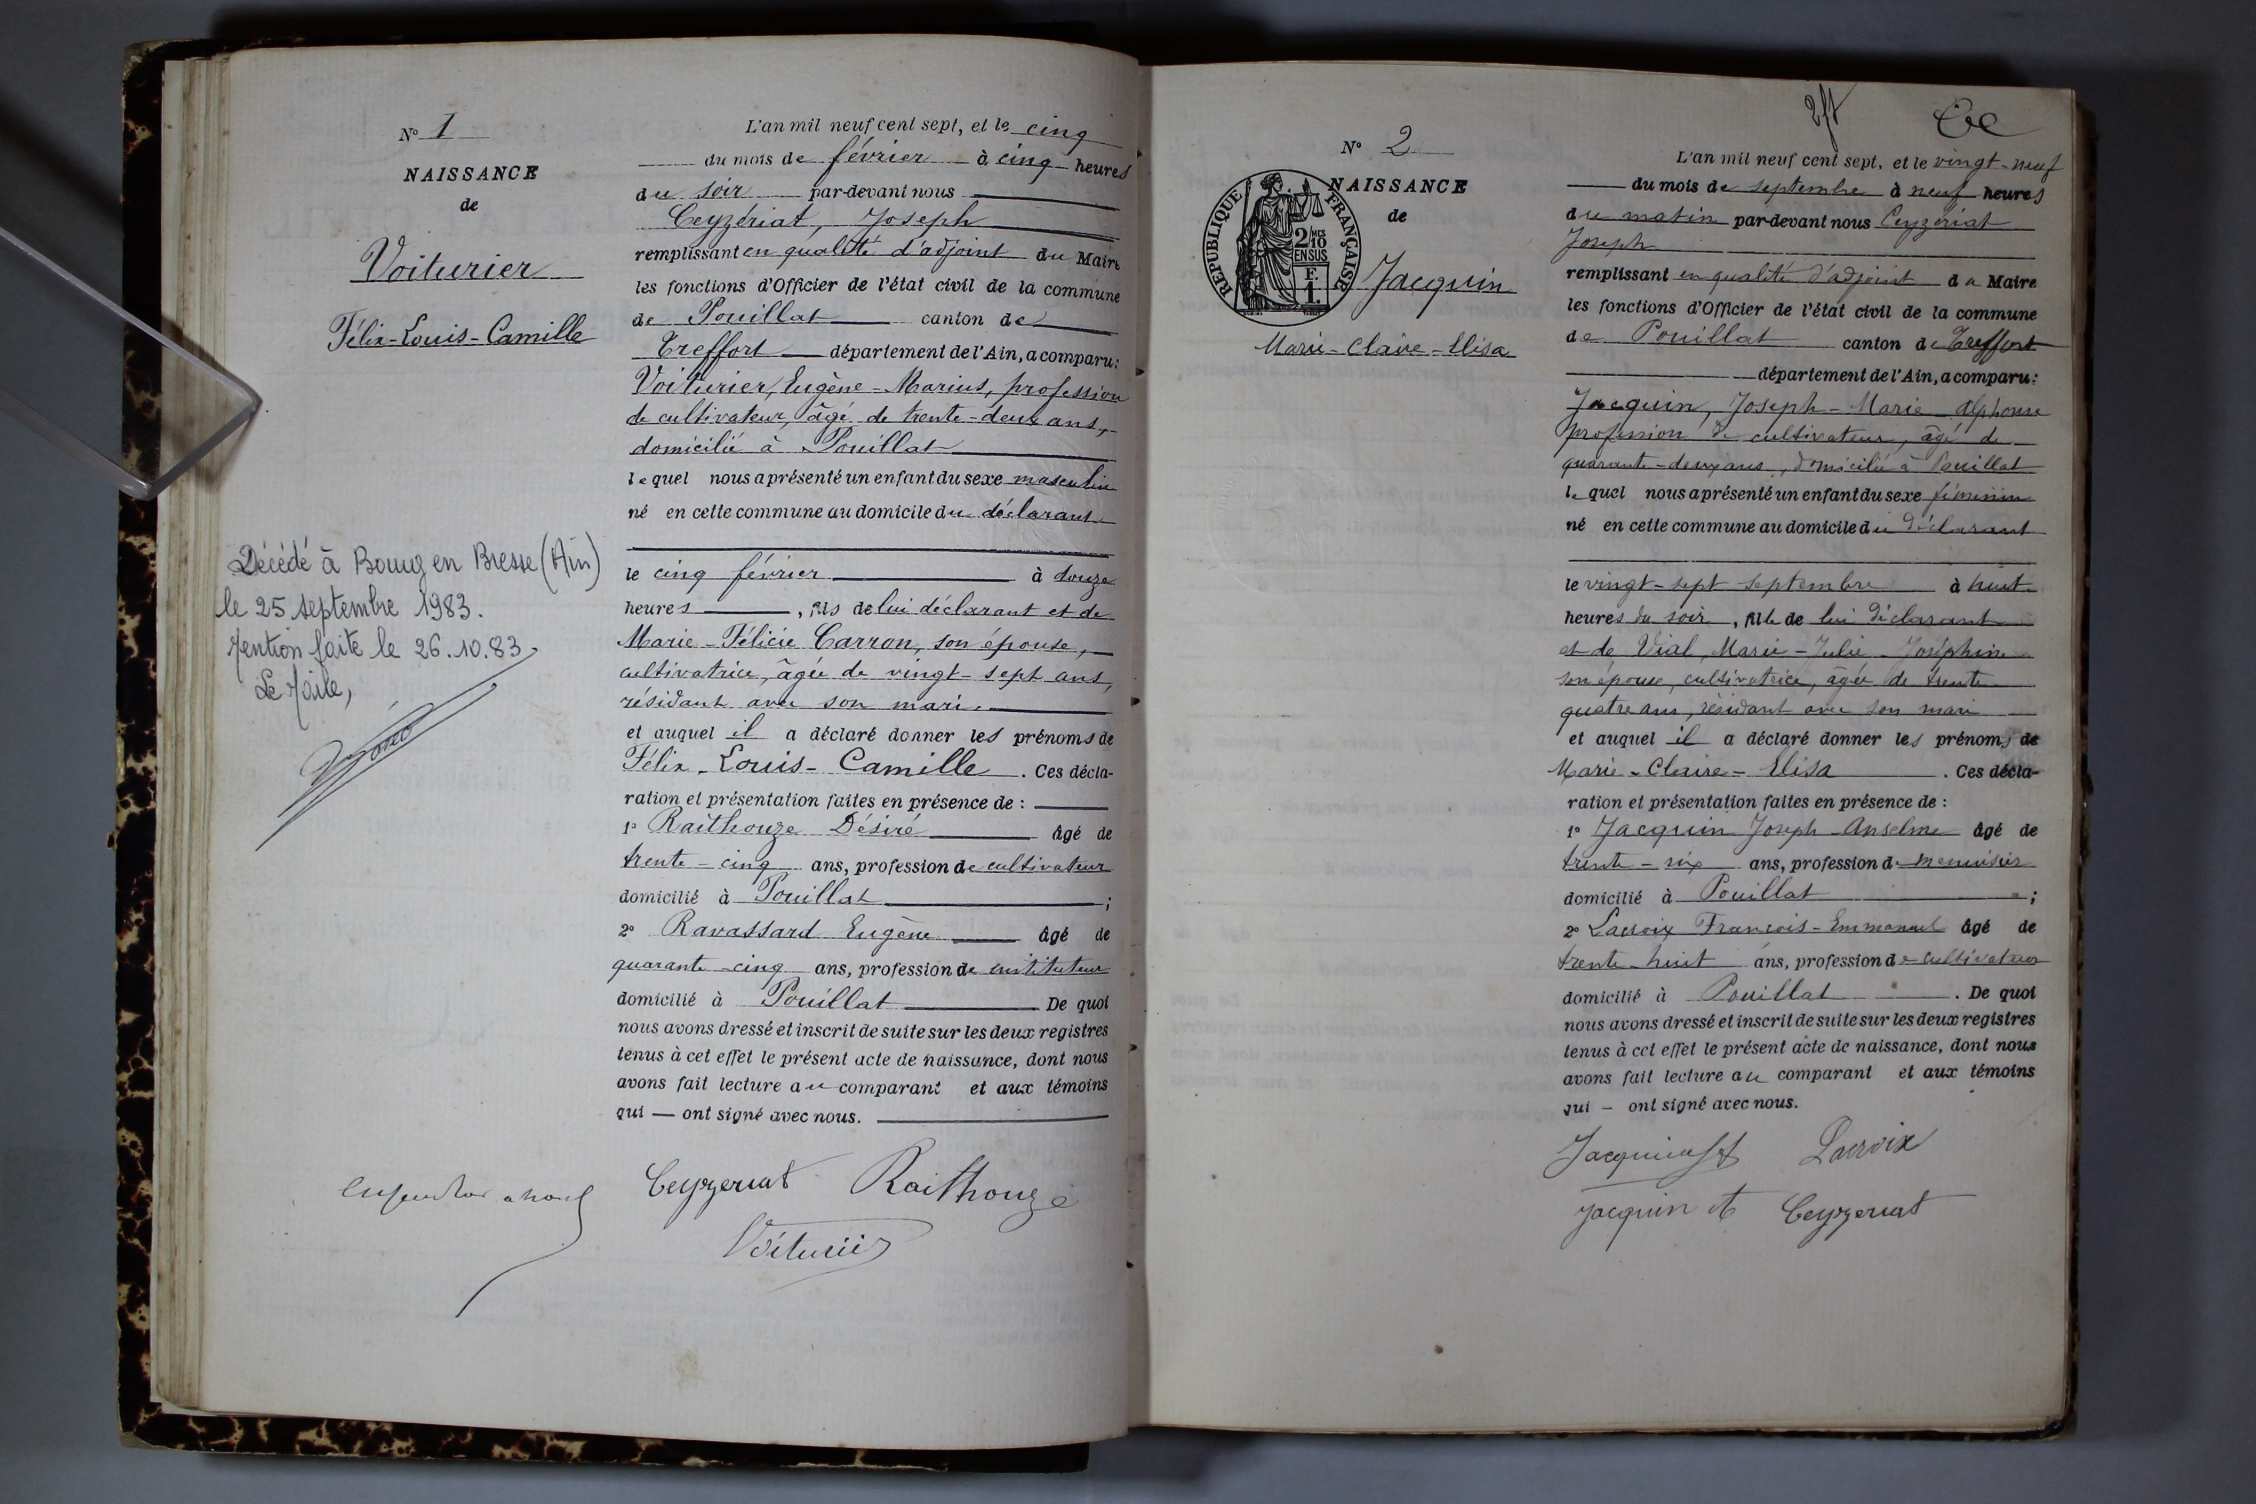 N° 1
NAISSANCE
de
Voiturier
Félix-Louis-Camille
Décédé à Bourg en Bresse (Ain)
le 25 septembre 1983.
Mention faite le 26.10.83.
Le Maire,
L'an mil neuf cent sept, et le cinq
du mois de février à cinq heures
du soir par-devant nous
Ceyzériat, Joseph
remplissant en qualité d'adjoint du Maire
les fonctions d'Officier de l'état civil de la commune
de Pouillat canton de
Treffort département de l'Ain, a comparu:
Voiturier, Eugène-Marius, profession
de cultivateur, âgé de trente-deux ans,
domicilié à Pouillat
lequel nous a présenté un enfant du sexe masculin
né en cette commune au domicile du déclarant
le cinq février à douze
heures, fils de lui déclarant et de
Marie-Félicie Carron, son épouse,
cultivatrice, âgée de vingt-sept ans,
résidant avec son mari.
et auquel il a déclaré donner les prénoms de
Félix-Louis-Camille. Ces décla-
ration et présentation faites en présence de :
1° Raithouze Désiré âgé de
trente-cinq ans, profession de cultivateur
domicilié à Pouillat ;
2° Ravassard Eugène âgé de
quarante-cinq ans, profession de instituteur
domicilié à Pouillat De quoi
nous avons dressé et inscrit de suite sur les deux registres
tenus à cet effet le présent acte de naissance, dont nous
avons fait lecture au comparant et aux témoins
qui — ont signé avec nous.
Ceyzeriat Raithouze
Voiturier
N° 2
NAISSANCE
de
RÉPUBLIQUE FRANÇAISE
2/10 MES
EN SUS
F.
1.
Jacquin
Marie-Claire-Elisa
L'an mil neuf cent sept, et le vingt-neuf
du mois de septembre à neuf heures
du matin par-devant nous Ceyzériat
Joseph
remplissant en qualité d'adjoint du Maire
les fonctions d'Officier de l'état civil de la commune
de Pouillat canton de Treffort
département de l'Ain, a comparu:
Jacquin, Joseph-Marie-Alphonse
profession de cultivateur, âgé de
quarante-deux ans, domicilié à Pouillat
lequel nous a présenté un enfant du sexe féminin
né en cette commune au domicile du déclarant
le vingt-sept septembre à huit
heures du soir, fille de lui déclarant
et de Vial, Marie-Julie-Joséphine
son épouse, cultivatrice, âgée de trente
quatre ans, résidant avec son mari
et auquel il a déclaré donner les prénoms de
Marie-Claire-Elisa. Ces décla-
ration et présentation faites en présence de :
1° Jacquin Joseph-Anselme âgé de
trente-six ans, profession de menuisier
domicilié à Pouillat ;
2° Lacroix François-Emmanuel âgé de
trente-huit ans, profession de cultivateur
domicilié à Pouillat. De quoi
nous avons dressé et inscrit de suite sur les deux registres
tenus à cet effet le présent acte de naissance, dont nous
avons fait lecture au comparant et aux témoins
qui — ont signé avec nous.
Jacquin Lacroix
Jacquin A Ceyzeriat